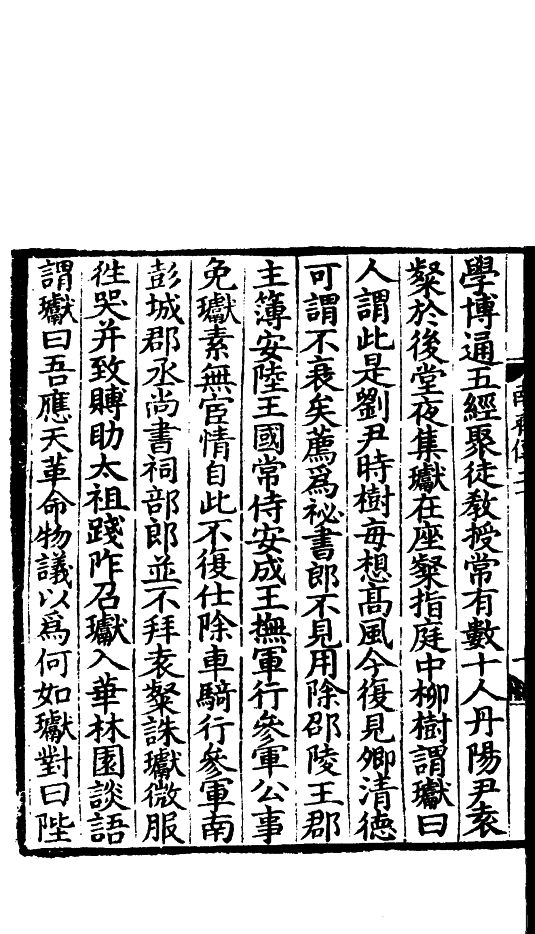 學博通五經聚徒教授常有數十人丹陽尹袁
粲於後堂夜集瓛在座粲指庭中柳樹謂瓛曰
人謂此是劉尹時樹每想髙風今復見卿清德
可謂不衰矣薦爲祕書郎不見用除邵陵王郡
主簿安陸王國常侍安成王撫軍行參軍公事
免瓛素無宦情自此不復仕除車騎行參軍南
彭城郡丞尚書祠部郎並不拜袁粲誅瓛微服
徃哭并致賻助太祖踐阼召瓛入華林園談語
謂瓛曰吾應天革命物議以爲何如瓛對曰陛